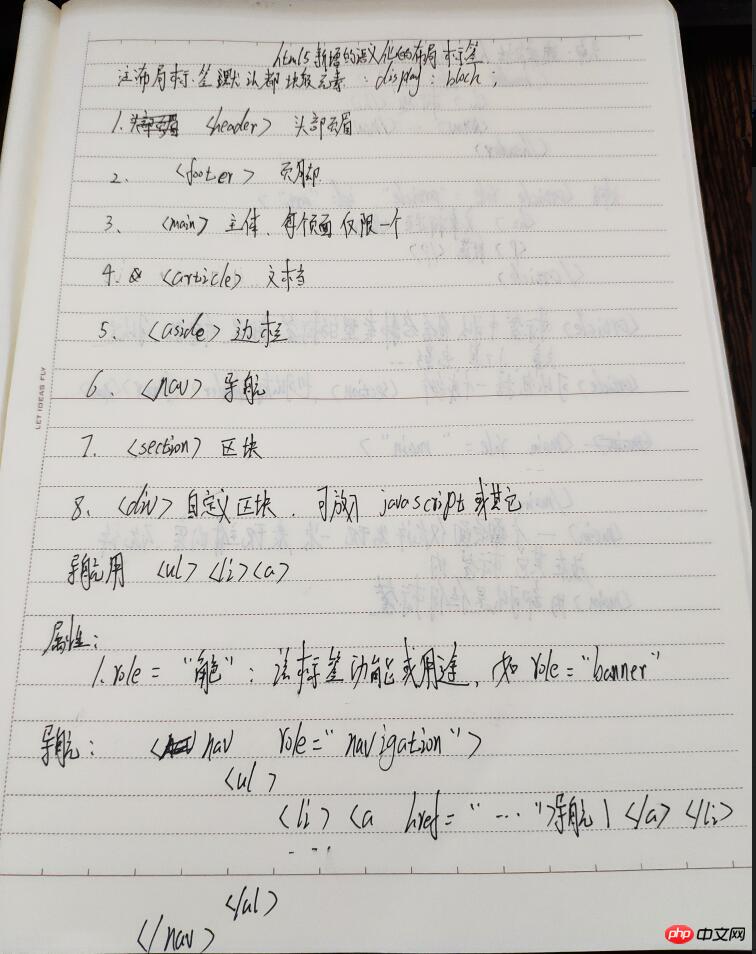 html5新增的语义化的布局标签
注布局标签默认都块级元素：display：block；
1. <header> 头部页眉
2. <footer> 页脚
3、<main> 主体、每个页面仅限一个
4. <article> 文档
5、<aside> 边栏
6、<nav> 导航
7、<section> 区块
8、<div> 自定义区块、可放 javascript 或其它
导航用 <ul><li><a>
属性：
1. role = "角色"：该标签功能或用途，如 role="banner"
导航： < nav role="navigation">
<ul>
<li> <a href="...">导航1</a></li>
...
</ul>
</nav>
LET IDEAS FLY
php 中文网